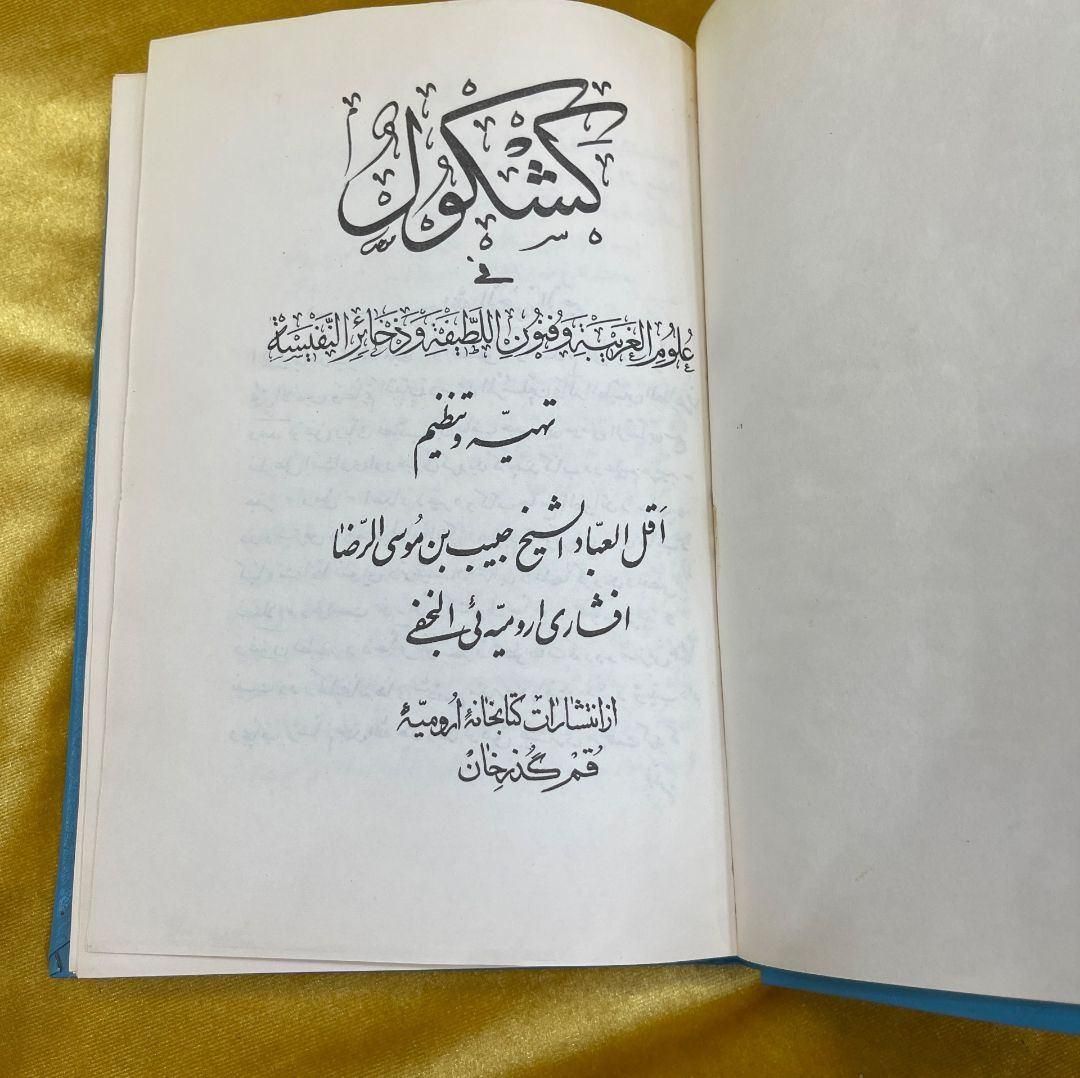 كَشْكُولْ
في
عُلُومِ الغَرِيبَةِ وَفُنُونِ اللَّطِيفَةِ وَذَخَائِرِ النَّفِيسَةِ
تهیّه و تنظیم
اَقل العبّاد الشیخ حبیب بن مُوسی الرّضا
افشاری ارومیّه ئی النجفي
از انتشارات کتابخانهٔ اُرومیّهٔ
قُم گذرخان